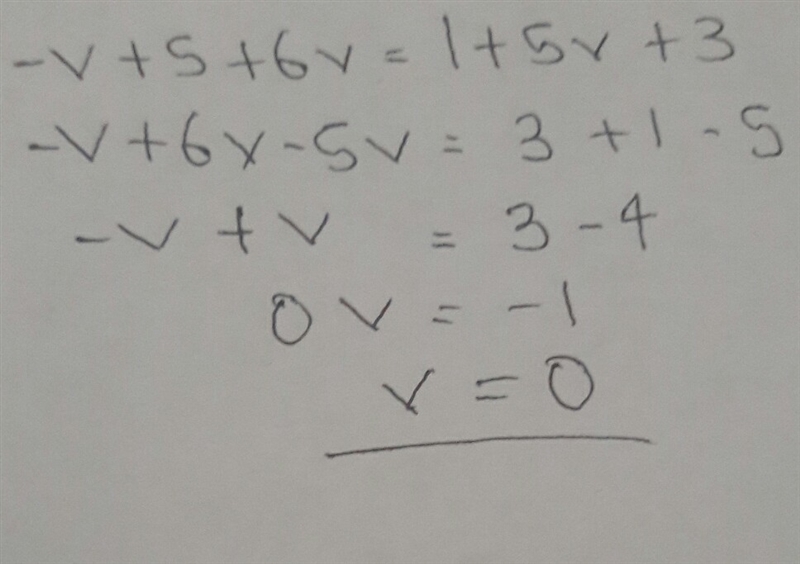 -v + 5 + 6v = 1 + 5v + 3
-v + 6v - 5v = 3 + 1 - 5
-v + v = 3 - 4
0v = -1
v = 0